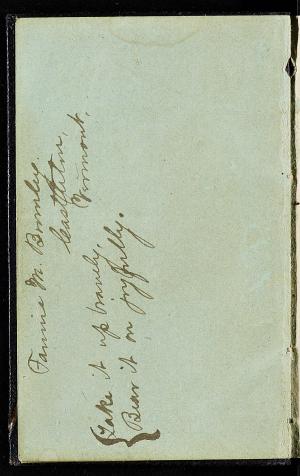 Fannie M. Bromley.
Castleton,
Vermont.
Take it up bravely,
Bear it on joyfully.